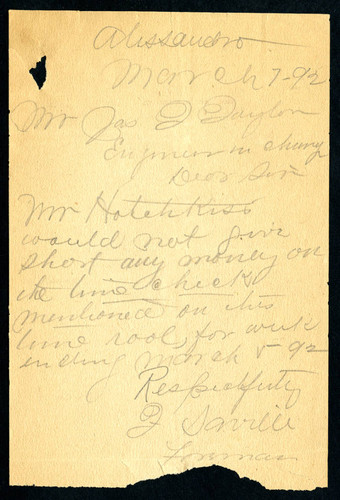 Alissandro
March 7-92
Mr Jas T Taylor
Engineer in charg
Dear Sir
Mr Hotchkiss
would not give
short any money on
the time check
mentioned on this
time rool for week
ending March 5 92
Respectfuly
J Saville
Forman